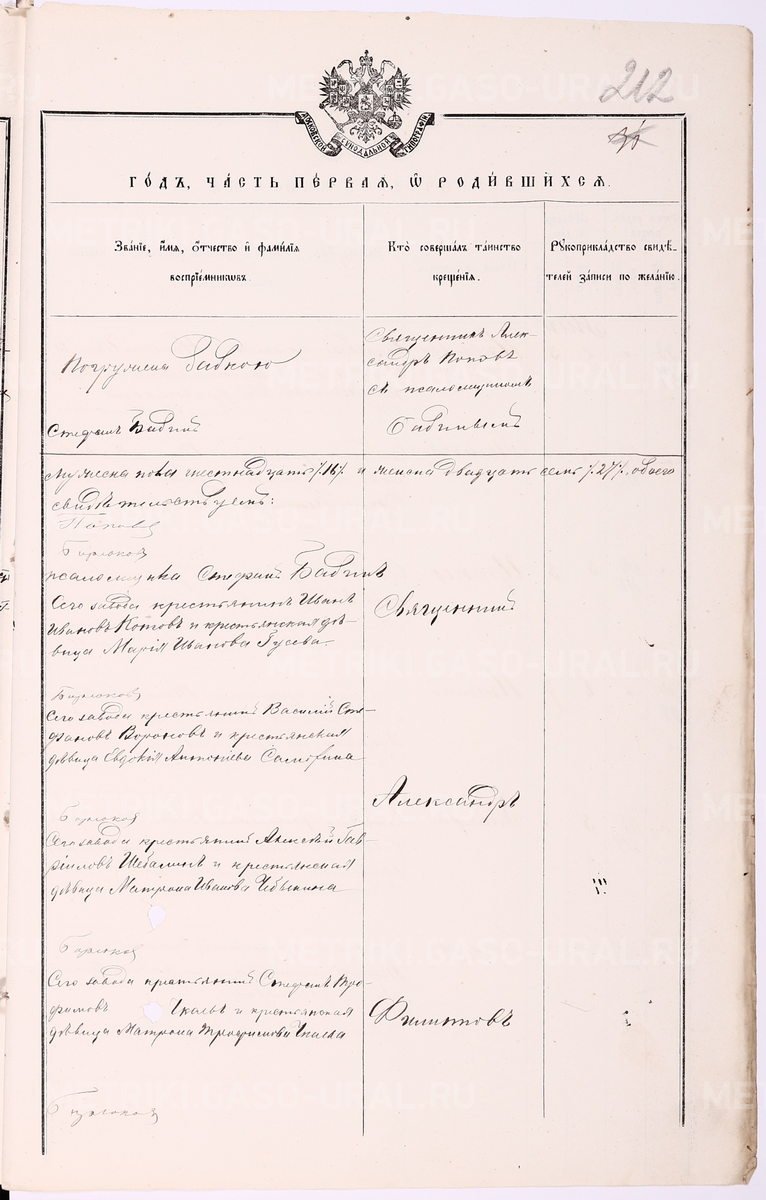 212
МОСКОВСКОЙ СѴНОДАЛЬНОЙ ТИПОГРАФІИ
ГОДЪ, ЧАСТЬ ПЕРВАЯ, Ѡ РОДИВШИХСЯ.
Званіе, имя, отчество и фамилія
воспріемниковъ.
Кто совершалъ таинство
крещенія.
Рукоприкладство свидѣ-
телей записи по желанію.
Погружена бабкою
Священникъ Алек-
сандръ Поповъ
съ псаломщикомъ
Бабинымъ
Стефанъ Бабинъ
мужеска пола шестнадцать /16/ и женска двадцать семь /27/, обоего
свидѣтельствуемъ:
Попов
Бирюков
псаломщикъ Стефанъ Бабинъ
Сего завода крестьянинъ Иванъ
Ивановъ Котовъ и крестьянская дѣ-
вица Марія Иванова Гусева.
Священникъ
Бирюков
Сего завода крестьянинъ Василій Сте-
фановъ Вороновъ и крестьянская
дѣвица Евдокія Антоніева
Александръ
Бирюков
Сего завода крестьянинъ Алексѣй Гав-
ріиловъ Шебалинъ и крестьянская
дѣвица Матрона Иванова
Бирюков
Сего завода крестьянинъ Стефанъ Тро-
фимовъ и крестьянская
дѣвица Матрона Трофимова
Филипповъ
Бирюков
METRIKI.GASO-URAL.RU